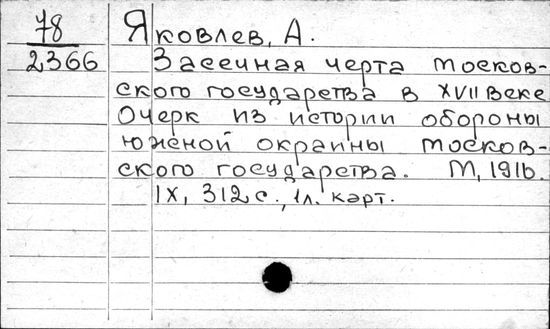 78 Яковлев, А.
2366 Засечная черта москов-
ского государства в XVII веке
Очерк из истории обороны
южной окраины москов-
ского государства. М, 1916.
IX, 312 с., 1л. карт.